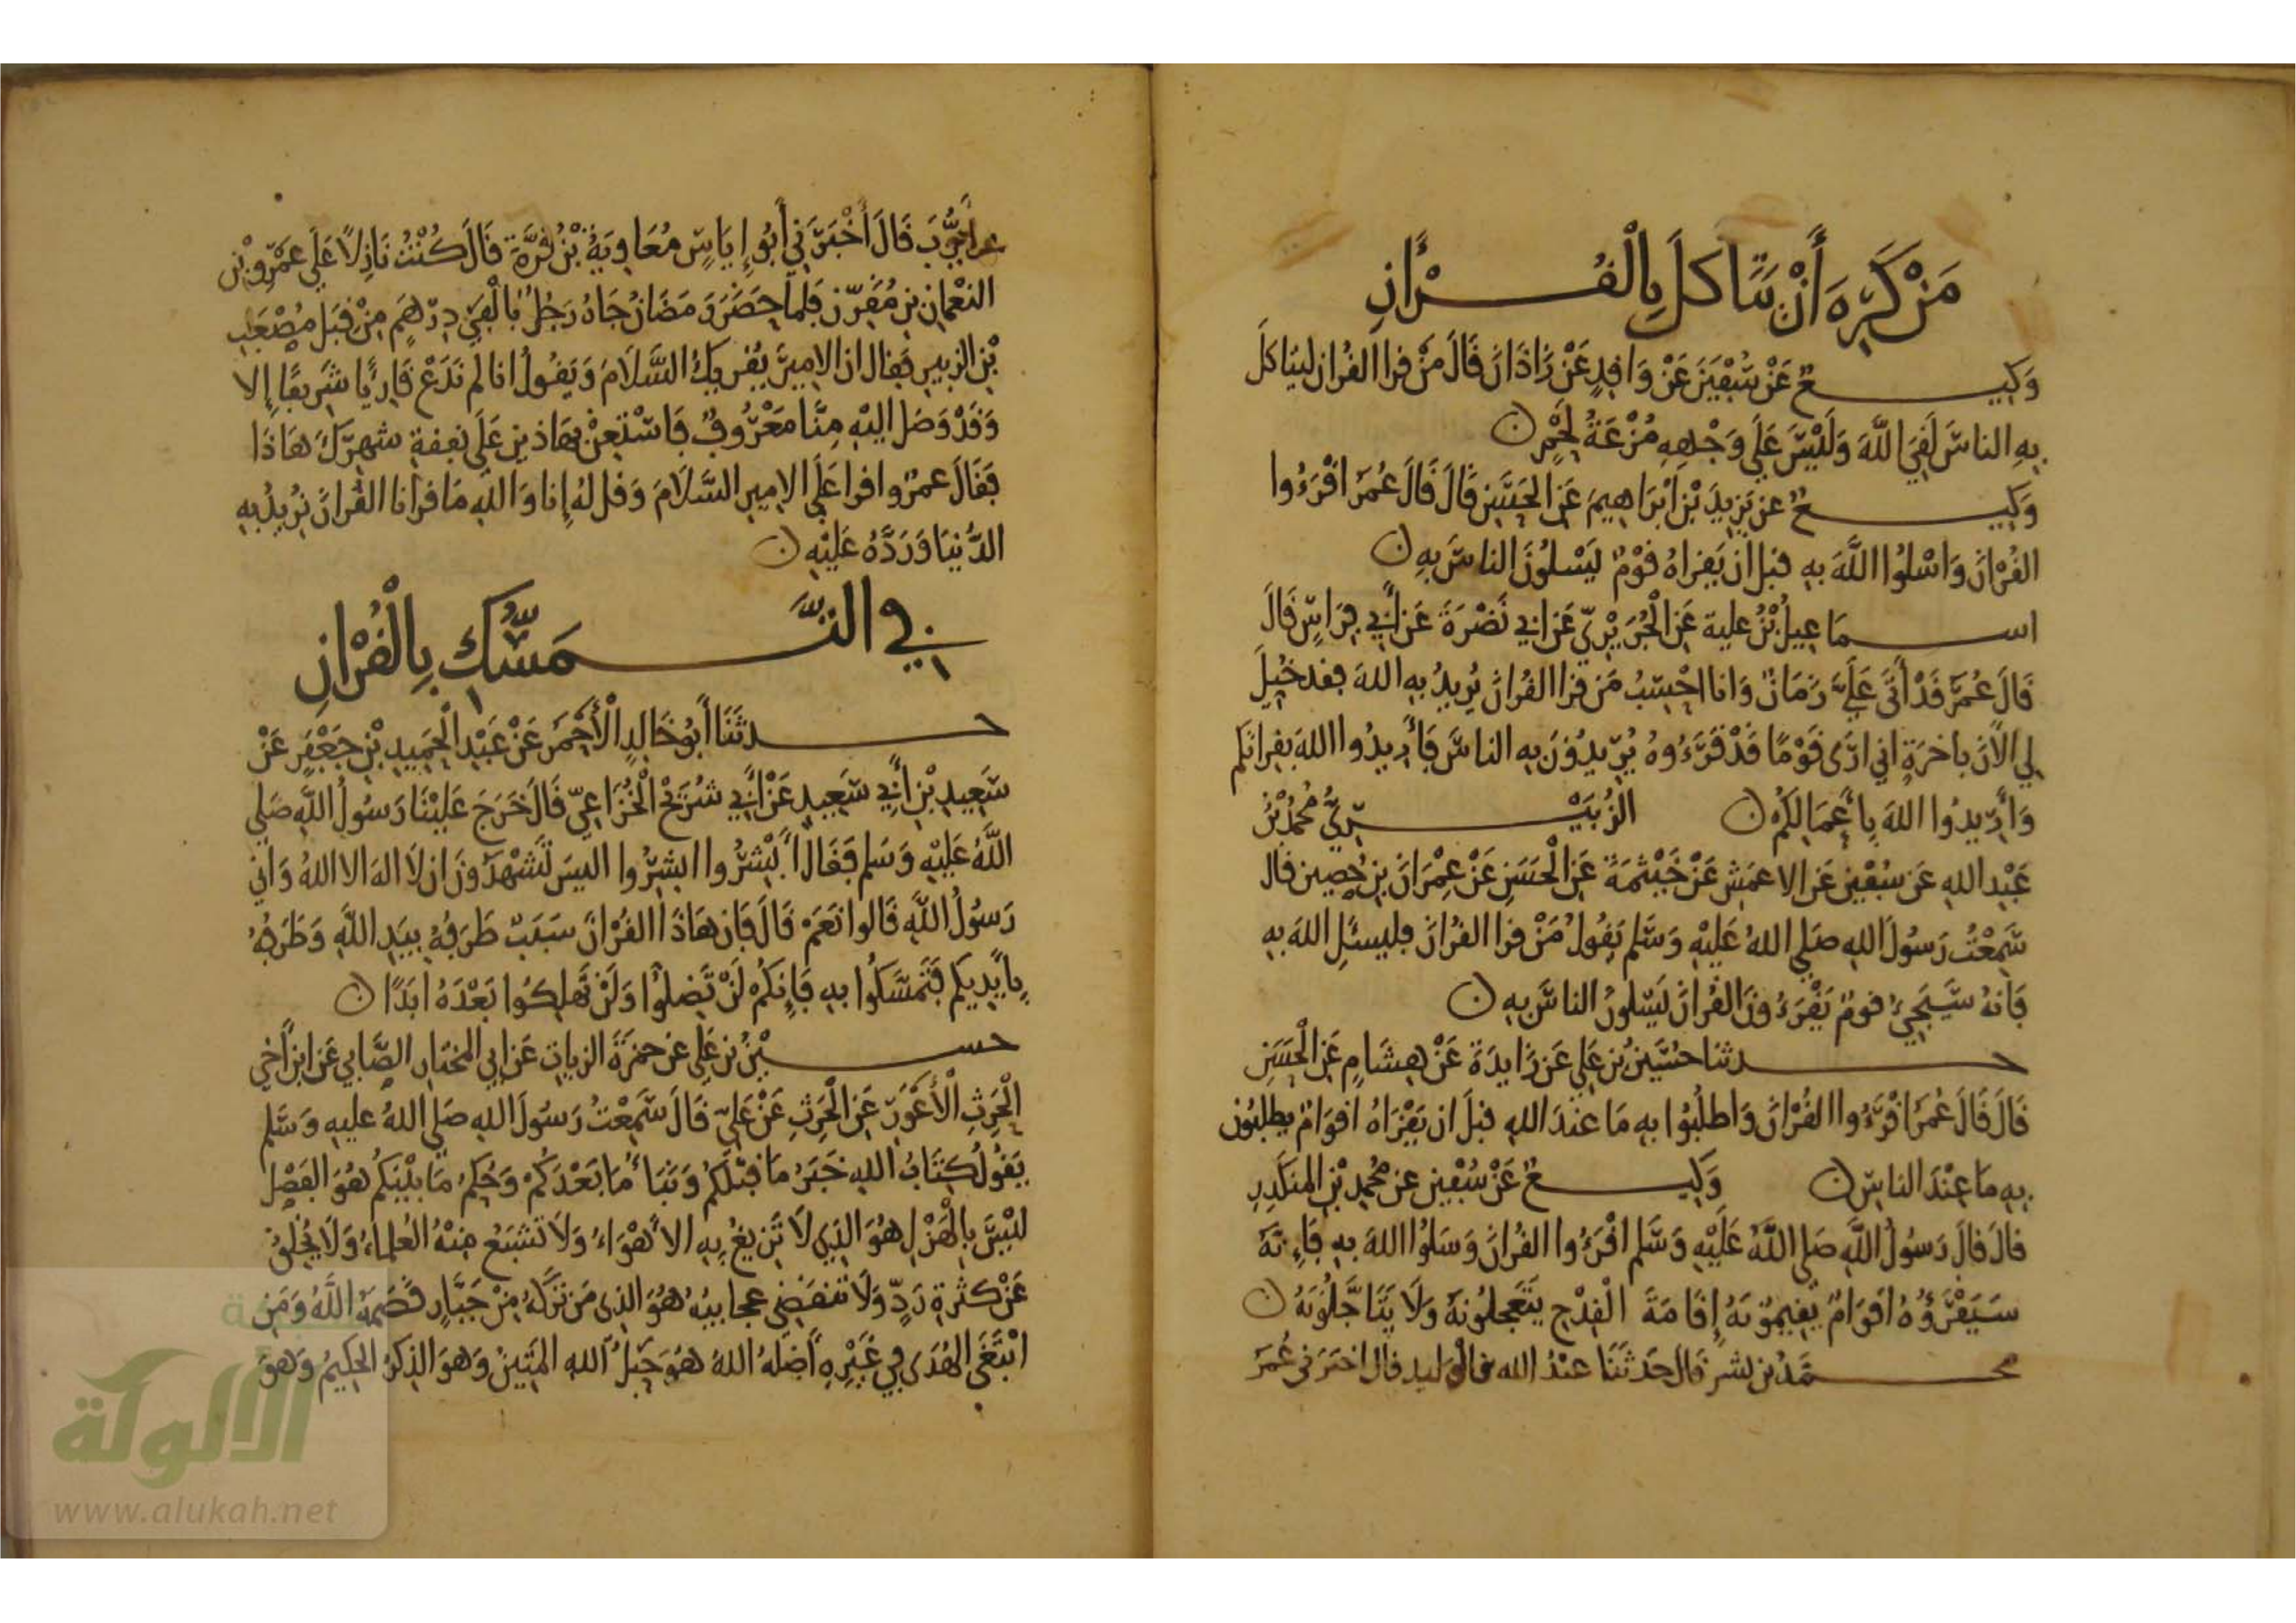 مَنْ كَرِهَ أَنْ يَتَأكلَ بِالْقُرْأنِ
وَكِيعٌ عَنْ سُفْيَنَ عَنْ وَاقِدٍ عَنْ زَاذَانَ قَالَ مَنْ قرا القُران ليَتاكَلَ
بِهِ الناسَ لَقِيَ اللَّهَ وَلَيْسَ عَلَي وَجْهِهِ مُزْعَةُ لَحْمٍ ن
وَكِيعٌ عن يَزِيدَ بْنِ ابْرَاهِيمَ عَنِ الحَسَنِ قَالَ قَالَ عُمَرُ اقْرَءُوا
القُرْانَ وَاسْلُوا اللَّهَ بِهِ قبل ان يَقراهُ قَوْمٌ يَسْلُونَ الناسَ بِهِ ن
اسمَاعِيلُ بْنُ علية عَنِ الْجُرَيْرِيّ عَن ابي نَضْرَةَ عَن أبي فِرَاسٍ قَالَ
قَالَ عُمَرُ قَدْ أَتَى عَلَيَّ زَمَانٌ وَانا احْسِبُ مَن قرا القُرانَ يُرِيدُ بِهِ اللهَ فقد خُيِّلَ
لِي الآنَ باخَرَةٍ اني ارَى قَوْمًا قَدْ قَرَءُوهُ يُرِيدُونَ بِهِ الناسَ فَأَرِيدُوا اللهَ بقرانكم
وَأَرِيدُوا اللهَ بِأَعْمَالِكُم ن الزُّبَيْرِيُّ مُحَمَّدُ بْنُ
عَبْدِ اللهِ عَن سُفْيَنَ عَنِ الاعمَشِ عَنْ خَيْثَمَةَ عَنِ الْحَسَنِ عَنْ عِمْرَانَ بنِ حُصِين قال
سَمِعْتُ رَسُولَ اللهِ صَلى اللهُ عَلَيْهِ وَسَلم يَقُولُ مَنْ قرا القُرانَ فليسئَلِ اللهَ بِهِ
فَانهُ سَيَجِيُ قومٌ يَقْرَءُونَ القُرانَ يَسْلُونَ الناسَ بِهِ ن
حدثنا حُسَيْنُ بْنُ عَلِي عَن زَايدَةَ عَنْ هِشَامٍ عَنِ الْحَسَنِ
قَالَ قَالَ عُمَرُ اقْرَءُوا القُرْانَ وَاطلُبُوا بِهِ مَا عِنْدَ اللهِ قبلَ ان يَقْرَاهُ اقوَامٌ يطلبُون
بِهِ مَا عِنْدَ الناسِ ن وَكِيعٌ عَنْ سُفْيَنَ عن مُحمدِ بْنِ المُنكَدِرِ
قالَ قالَ رَسُولُ اللَّهِ صَلى اللَّهُ عَلَيْهِ وَسَلم اقْرَءُوا القُرانَ وَسَلُوا اللهَ بِهِ فَإِنَّهُ
سَيَقْرَؤُهُ اقوَامٌ يُقِيمُونَهُ إقَامَةَ الْقِدْحِ يَتَعَجلُونَهُ وَلَا يَتَأجَّلُونَهُ ن
محمَّدُ بن بشرٍ قَالَ حَدثَنَا عبْدُ الله بن الوَليد قال اخبَرني عُمَرُ
عن أيُّوبَ قَالَ أَخْبَرَنِي أَبُو إِيَاسٍ مُعَاوِيَةُ بْنُ قُرَّةَ قَالَ كُنْتُ نَازِلًا عَلَى عَمْرِو بْنِ
النعْمانِ بنِ مُقَرّن فَلما حَضَرَ رَمَضَانُ جَاهُ رَجُلٌ بِأَلْفَيْ دِرْهَمٍ مِنْ قِبَلِ مُصْعَبِ
بْنِ الزبير فَقال ان الامِيرَ يُقريكَ السَّلَامَ وَيَقُولُ انا لم نَدَعْ قَارِيًا شَرِيفًا إِلا
وَقَدْ وَصَلَ اليْهِ مِنَّا مَعْرُوفٌ فَاسْتَعِنْ بهَاذينِ عَلَى نفقةِ شهرِكَ هَاذَا
فَقَالَ عمرٌو اقرا عَلَى الامِيرِ السَّلَامَ وَقل لهُ إِنا وَاللهِ مَا قرانا القُرانَ نُرِيدُ بِهِ
الدُّنيَا وَرَدَّهُ عَلَيْهِ ن
فِي التَّمَسُّكِ بِالْقُرْانِ
حدثَنَا أَبُو خَالِدٍ الْأَحْمَرُ عَنْ عَبْدِ الْحَمِيدِ بْنِ جَعْفَرٍ عَنْ
سَعِيدِ بْنِ أَبِي سَعِيدٍ عَنْ أَبِي شُرَيْحٍ الْخُزَاعِيّ قَالَ خَرَجَ عَلَيْنَا رَسُولُ اللَّهِ صَلي
اللَّهُ عَلَيْهِ وَسَلم فَقَالَ أَبْشِرُوا ابشِرُوا اليسَ تَشْهَدُونَ ان لَا اله الا اللهُ وَاني
رَسُولُ اللَّهِ قَالوا نَعَمْ قَالَ فَإن هَاذَا القُرْانَ سَبَبٌ طَرَفُهُ بِيَدِ اللَّهِ وَطَرَفُهُ
بِأَيْدِيكم فَتَمَسَّكُوا بِهِ فَإِنكُمْ لَنْ تَضِلُّوا وَلَنْ تَهلِكُوا بَعْدَهُ ابَدًا ن
حسيْنُ بن عَلِي عن حمزَةَ الزيات عَن ابي المختَارِ الطَّايي عَنِ ابن أَخِي
الْحَرِثِ الْأَعْوَرِ عَنِ الْحَرِثِ عَنْ عَلِيّ قَالَ سَمِعْتُ رَسُولَ اللهِ صَلي اللهُ عليهِ وَسَلم
يَقُولُ كِتَابُ اللهِ خَبَرُ مَا قبْلَكُم وَنَبَأُ مَا بَعْدَكُمْ وَحُكمُ مَا بَيْنَكُمْ هُوَ الفَصْلُ
لَيْسَ بِالْهَزْلِ هُوَ الذِي لَا تَزِيغُ بِهِ الاهْوَاءُ وَلَا تَشْبَعُ مِنْهُ العُلماءُ وَلَا يَخْلَقُ
عَنْ كثْرَةِ رَدٍّ وَلَا تنقَضِي عجايبُهُ هُوَ الذِى مَن تَرَكَهُ مِنْ جَبَّارٍ قَصَمَهُ اللَّهُ وَمَنِ
ابْتَغَى الهُدَى فِي غَيْرِهِ أَضلهُ اللهُ هُوَ حَبْلُ اللهِ المَتِينُ وَهوَ الذِكرُ الحكِيمُ وَهوَ
الألوكة
www.alukah.net